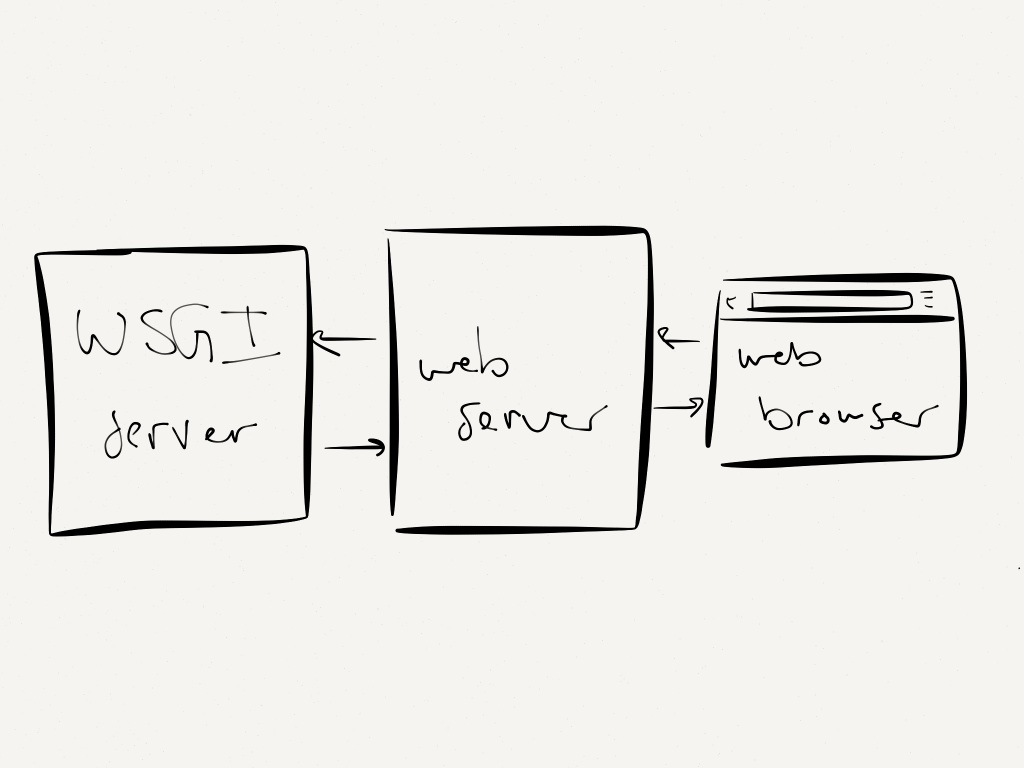 WSGI
server
web
server
web
browser